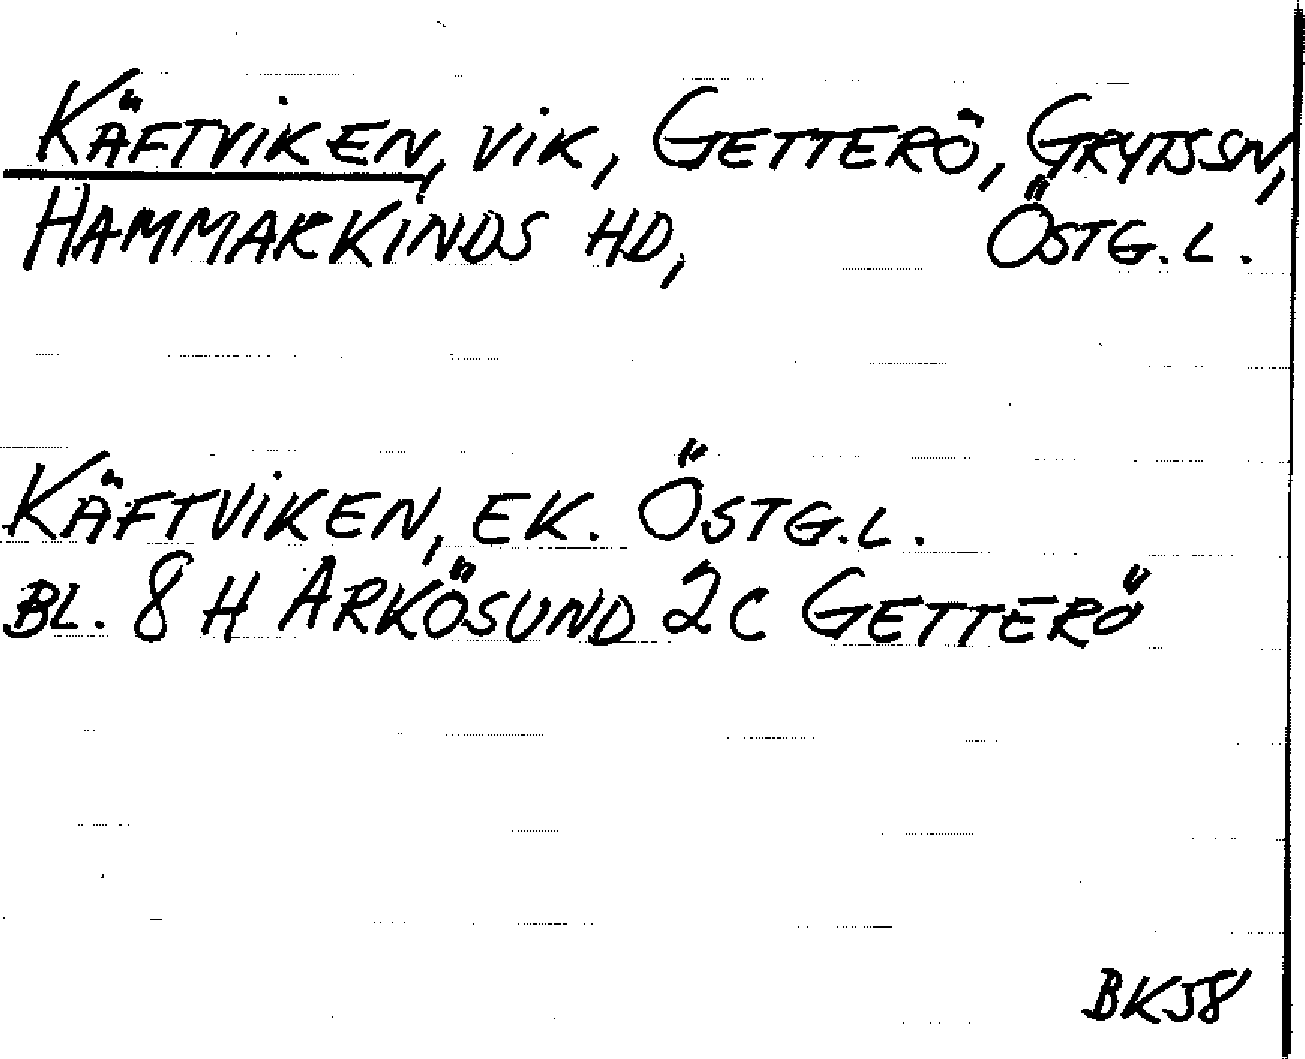 KÄFTVIKEN, VIK, GETTERÖ, GRYTS SN,
HAMMARKINDS HD, ÖSTG. L.
KÄFTVIKEN, EK. ÖSTG.L.
BL. 8 H ARKÖSUND 2C GETTERÖ
BK58